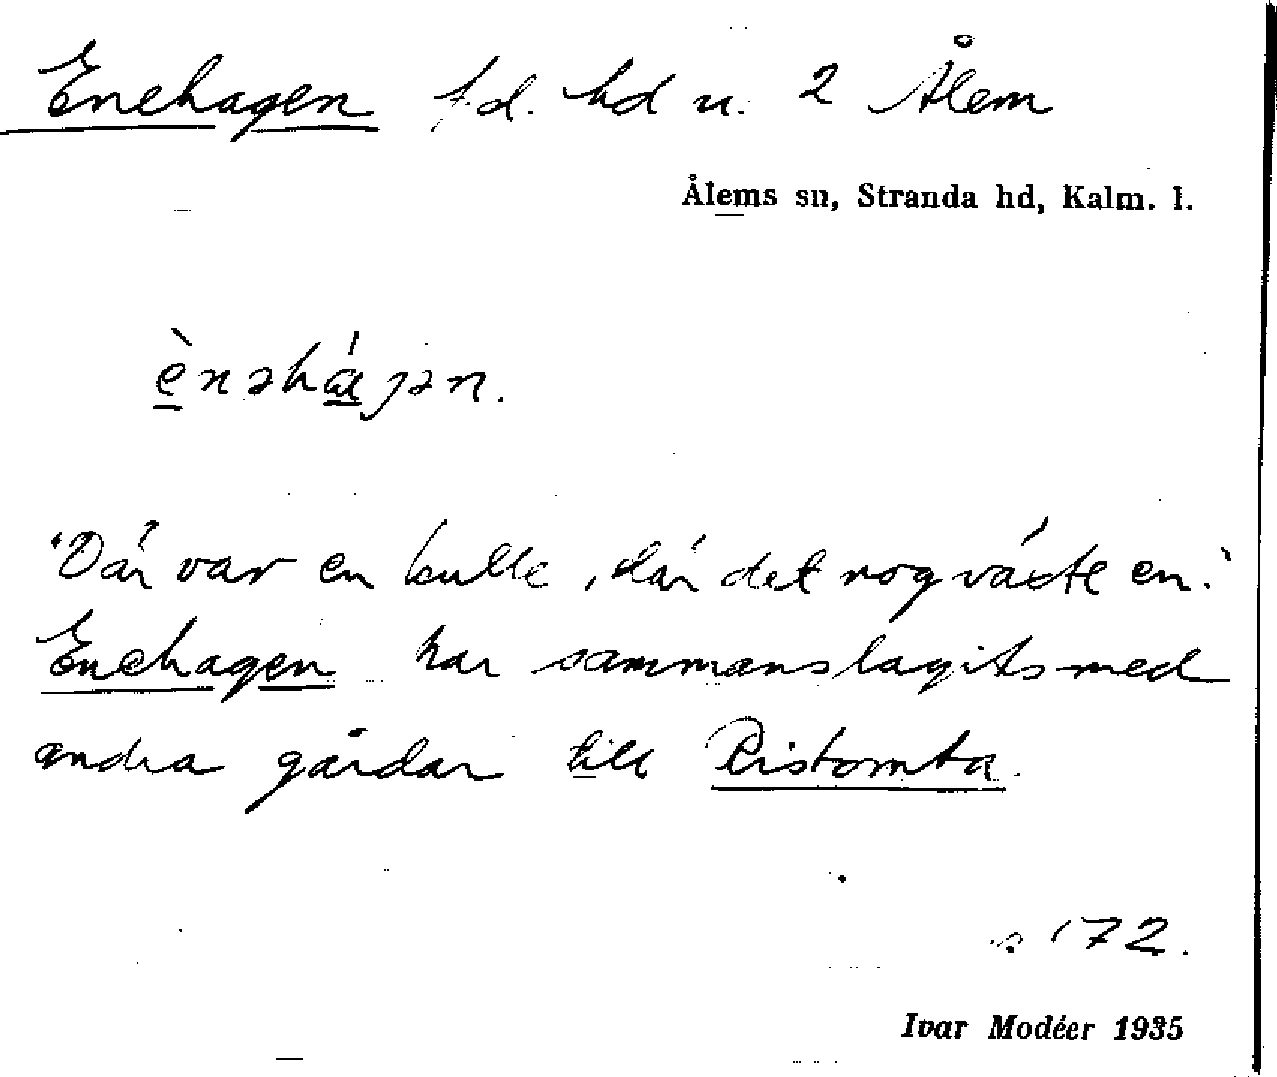 Enehagen f.d. hd u. 2 Ålem
Ålems sn, Stranda hd, Kalm. l.
ènəhájən.
"Där var en kulle, där det nog växte en."
Enehagen har sammanslagits med
andra gårdar till Ristomta.
s 172.
Ivar Modéer 1935